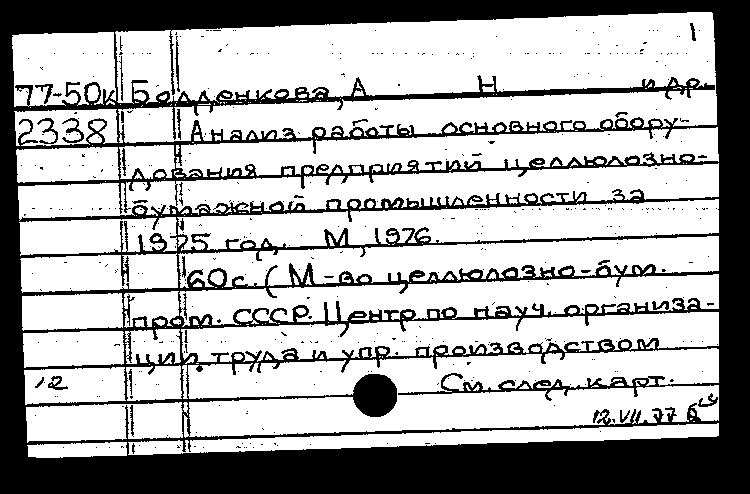 1
77-50к Болденкова, А Н и др.
2338 Анализ работы основного обору-
дования предприятий целлюлозно-
бумажной промышленности за
1975 год. М, 1976.
60с. (М-во целлюлозно-бум.
пром. СССР. Центр по науч. организа-
ции труда и упр. производством
См. след. карт.
12.VII.77